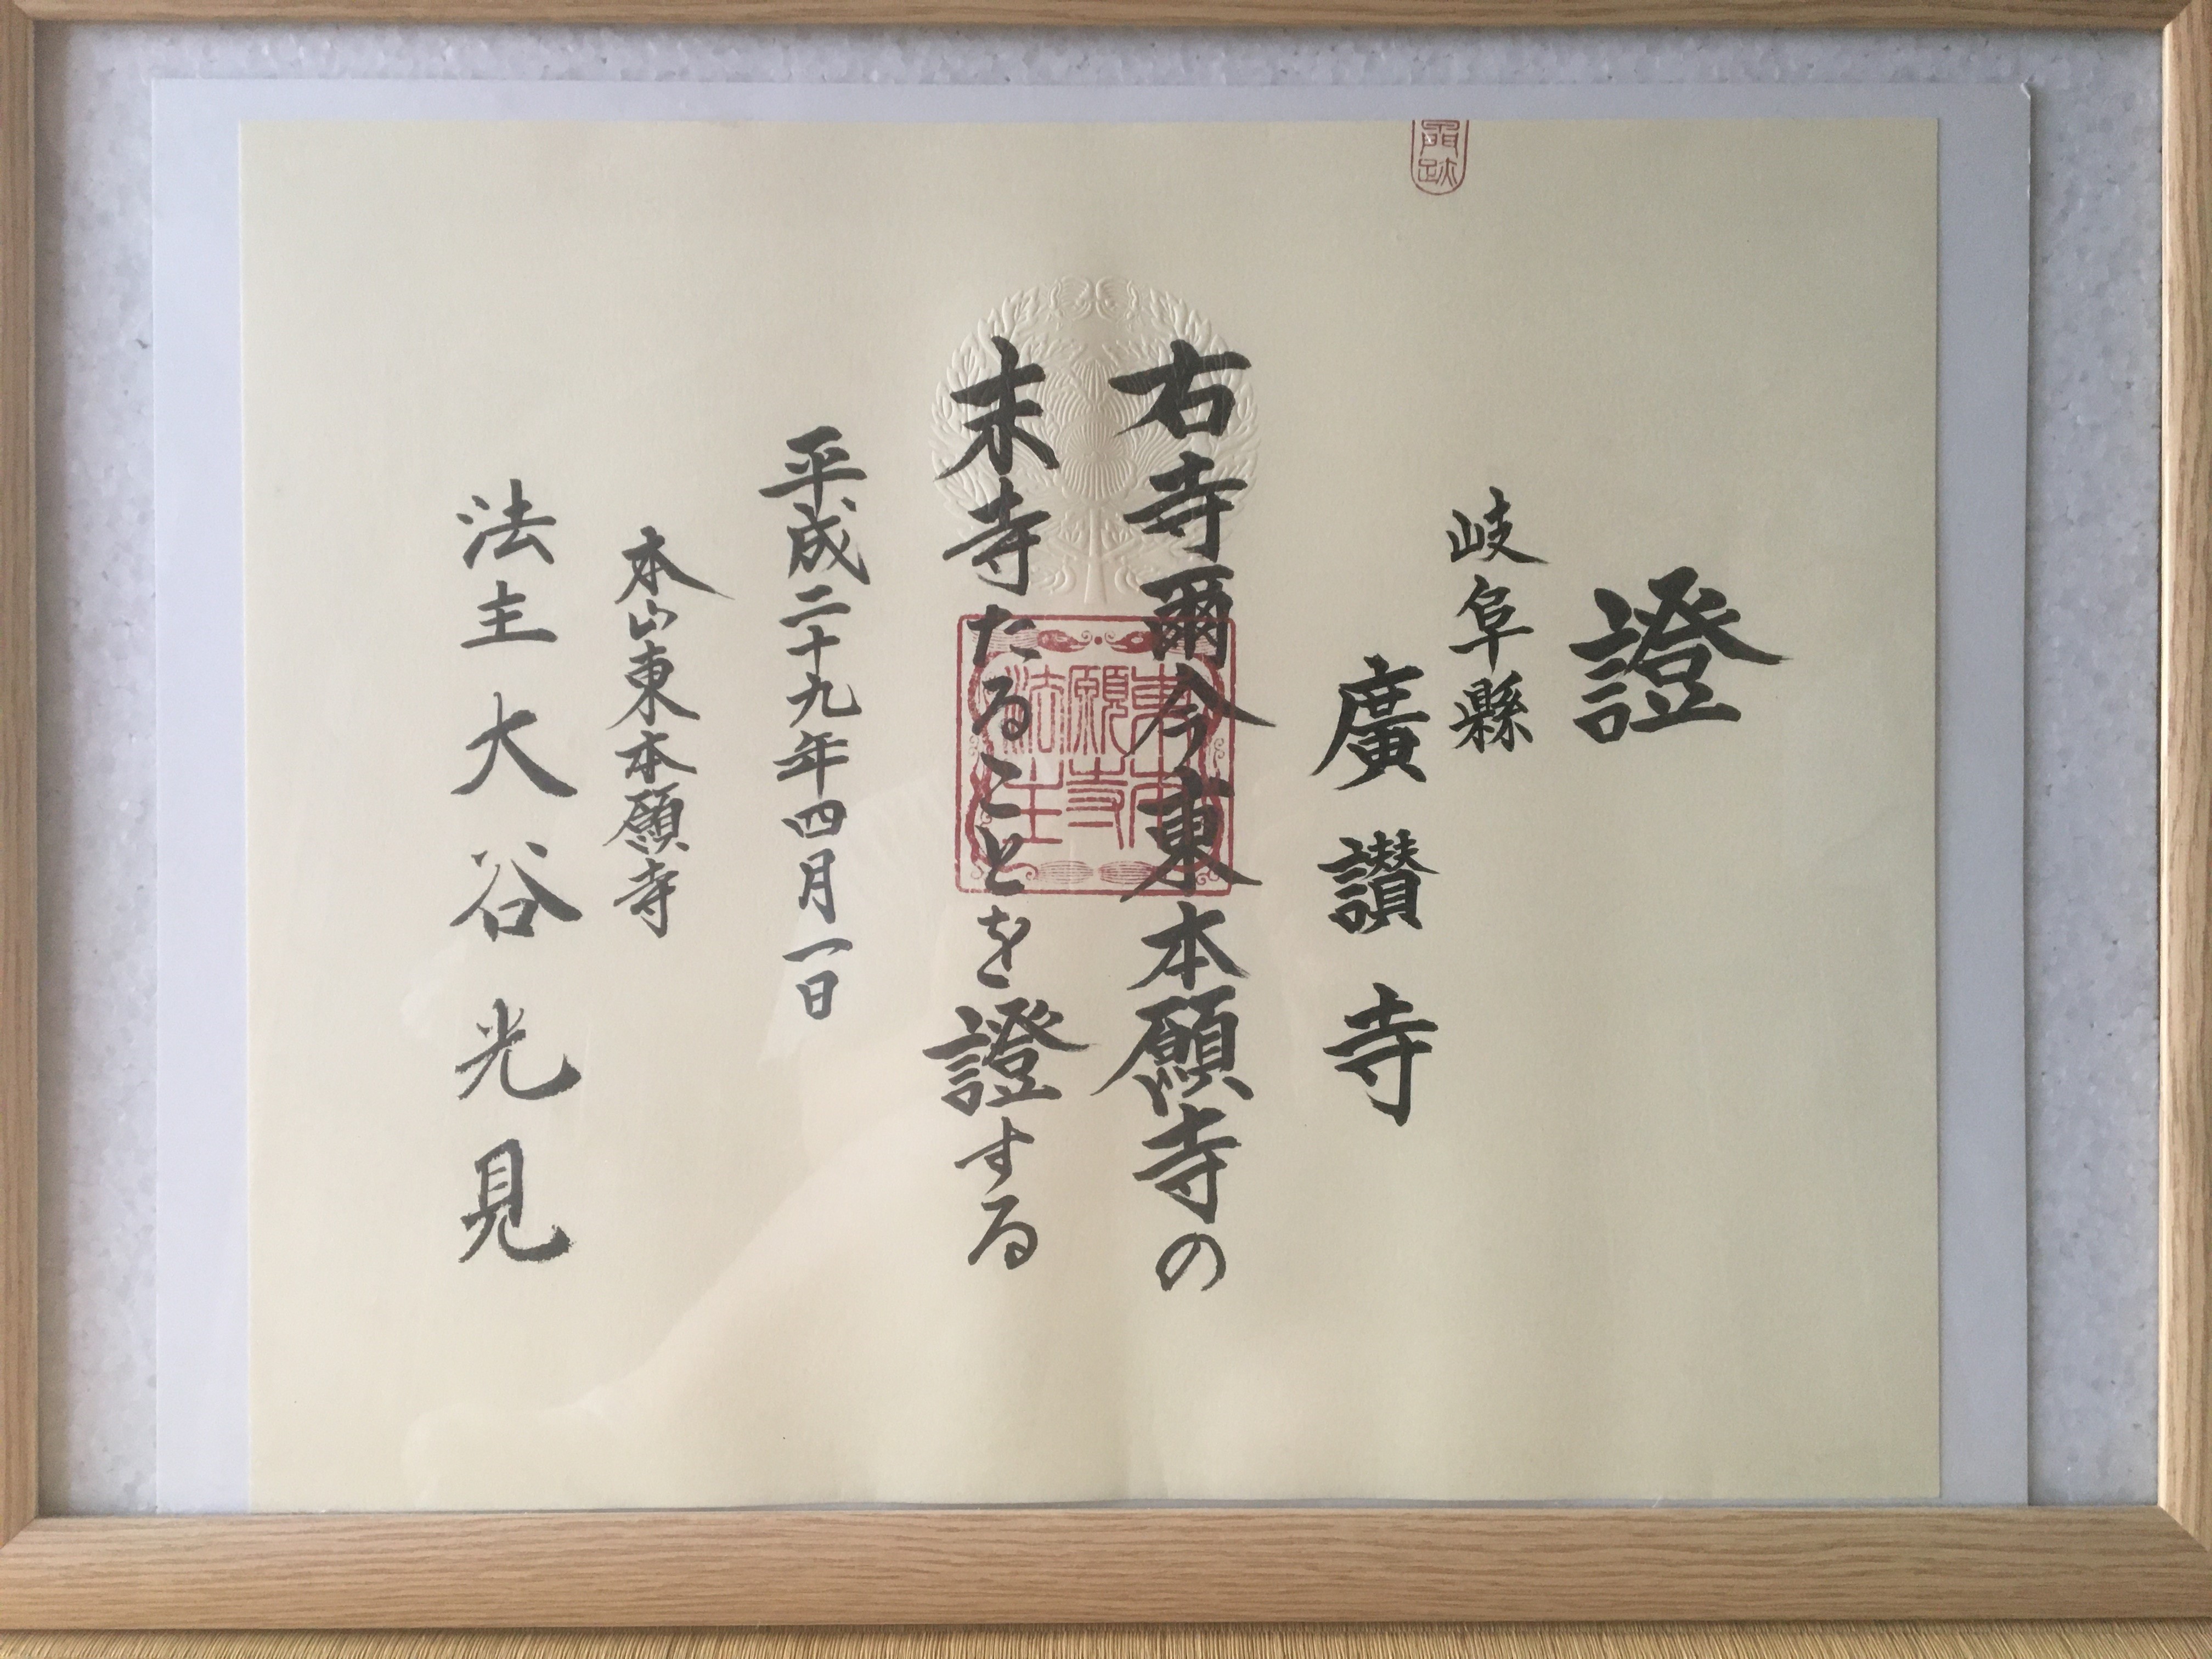 證
岐阜縣
廣讃寺
右寺爾今東本願寺の
末寺たることを證する
平成二十九年四月一日
本山東本願寺
法主大谷光見
東本願寺法主